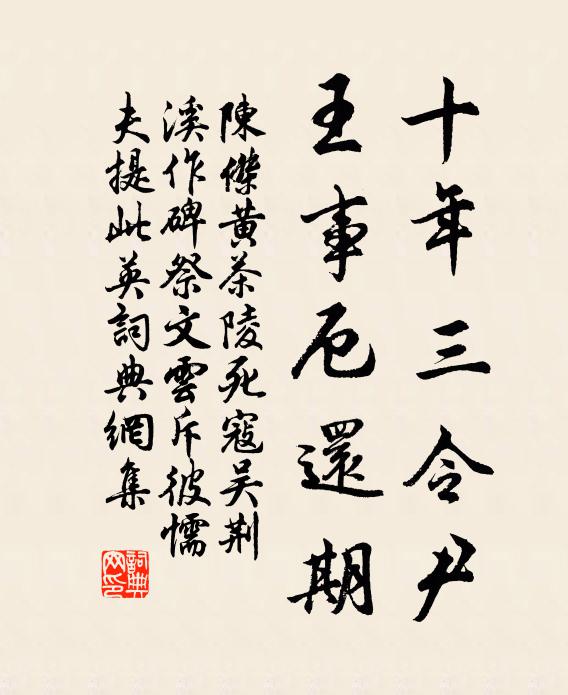 十年三令尹
王事厄還期
陳傑黃茶陵死寇吴荆
溪作碑祭文雲斥彼懦
夫提此英詞典網集
詞典網印